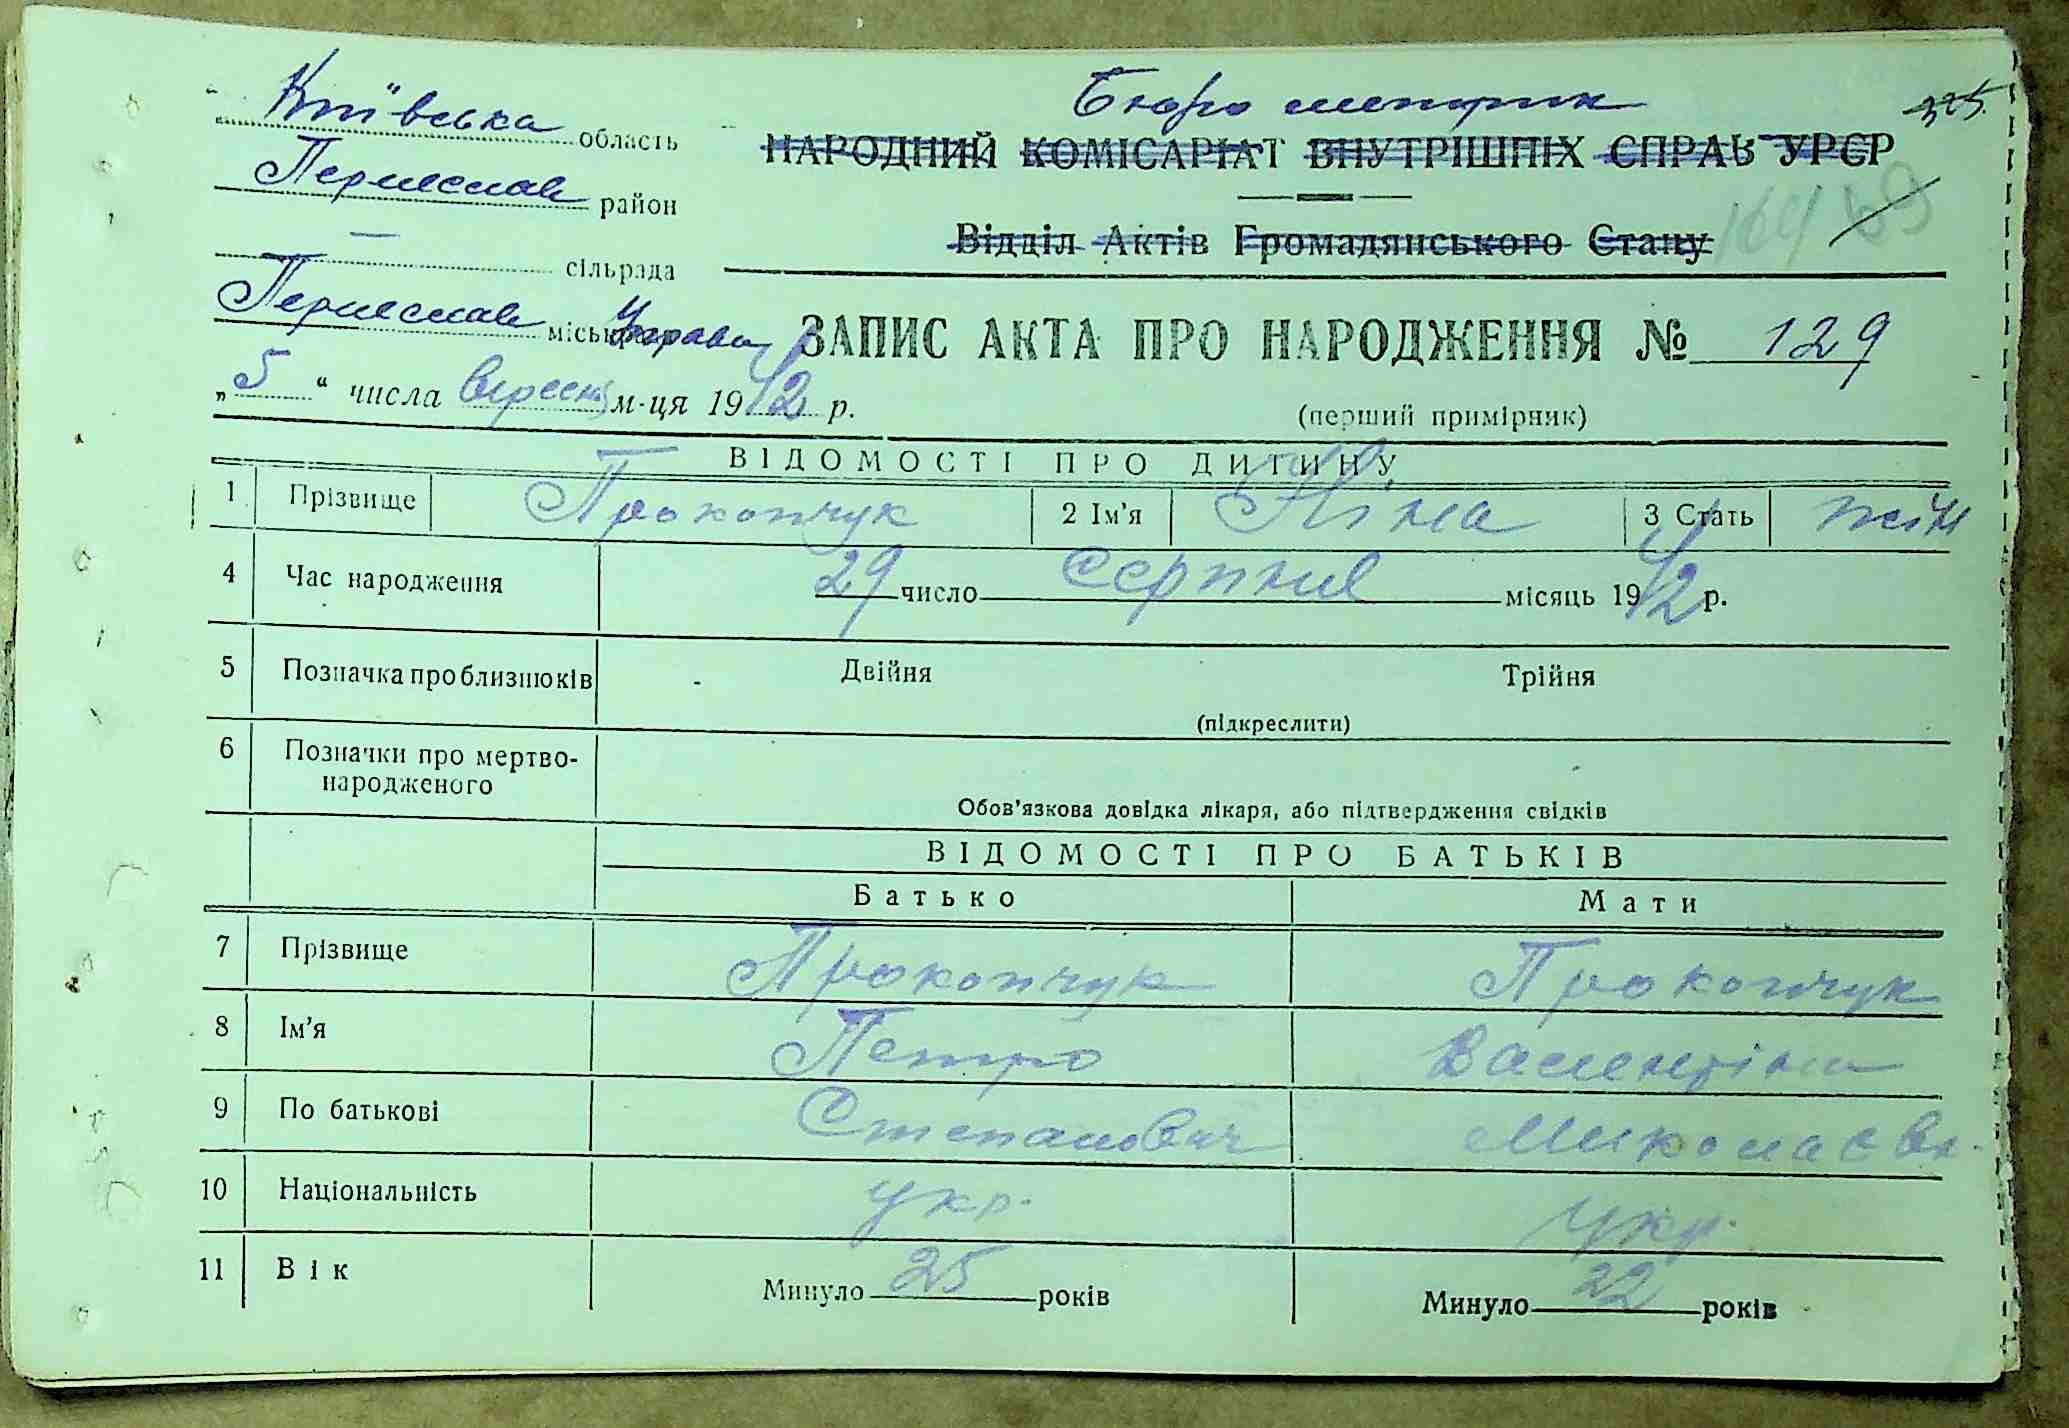 Київська область
Бюро метрик
325.
НАРОДНИЙ КОМІСАРІАТ ВНУТРІШНІХ СПРАВ УРСР
Переяслав район
164
Відділ Актів Громадянського Стану
— сільрада
Переяслав міськ Управа
ЗАПИС АКТА ПРО НАРОДЖЕННЯ № 129
„5“ числа вересня м-ця 1942 р.
(перший примірник)
ВІДОМОСТІ ПРО ДИТИНУ
1 Прізвище Прокопчук 2 Ім'я Ніна 3 Стать жін
4 Час народження 29 число серпня місяць 1942 р.
5 Позначка про близнюків - Двійня Трійня
(підкреслити)
6 Позначки про мертво-
народженого
Обов'язкова довідка лікаря, або підтвердження свідків
ВІДОМОСТІ ПРО БАТЬКІВ
Батько Мати
7 Прізвище Прокопчук Прокопчук
8 Ім'я Петро Валентіна
9 По батькові Степанович Миколаєвн.
10 Національність укр. укр.
11 Вік Минуло 25 років Минуло 22 років